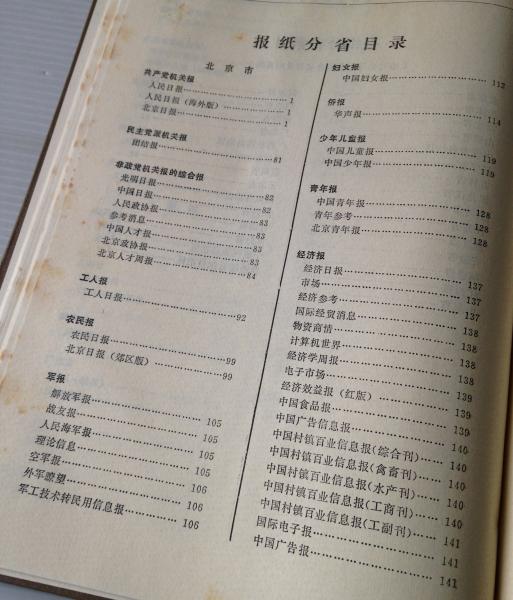 报纸分省目录
北京市
共产党机关报
人民日报……………………1
人民日报（海外版）……………1
北京日报……………………1
民主党派机关报
团结报……………………81
非政党机关报的综合报
光明日报……………………82
中国日报……………………82
人民政协报…………………83
参考消息……………………83
中国人才报…………………83
北京政协报…………………83
北京人才周报………………84
工人报
工人日报……………………92
农民报
农民日报……………………99
北京日报（郊区版）……………99
军报
解放军报……………………105
战友报……………………105
人民海军报…………………105
理论信息……………………105
空军报……………………106
外军瞭望……………………106
军工技术转民用信息报…………106
妇女报
中国妇女报…………………112
侨报
华声报……………………114
少年儿童报
中国儿童报…………………119
中国少年报…………………119
青年报
中国青年报…………………128
青年参考……………………128
北京青年报…………………128
经济报
经济日报……………………137
市场………………………137
经济参考……………………137
国际经贸消息………………138
物资商情……………………138
计算机世界…………………138
经济学周报…………………138
电子市场……………………138
经济效益报（红版）……………139
中国食品报…………………139
中国广告信息报………………140
中国村镇百业信息报(综合刊)……140
中国村镇百业信息报(禽畜刊)……140
中国村镇百业信息报(水产刊)……140
中国村镇百业信息报(工商刊)……140
中国村镇百业信息报(工副刊)……141
国际电子报…………………141
中国广告报…………………141